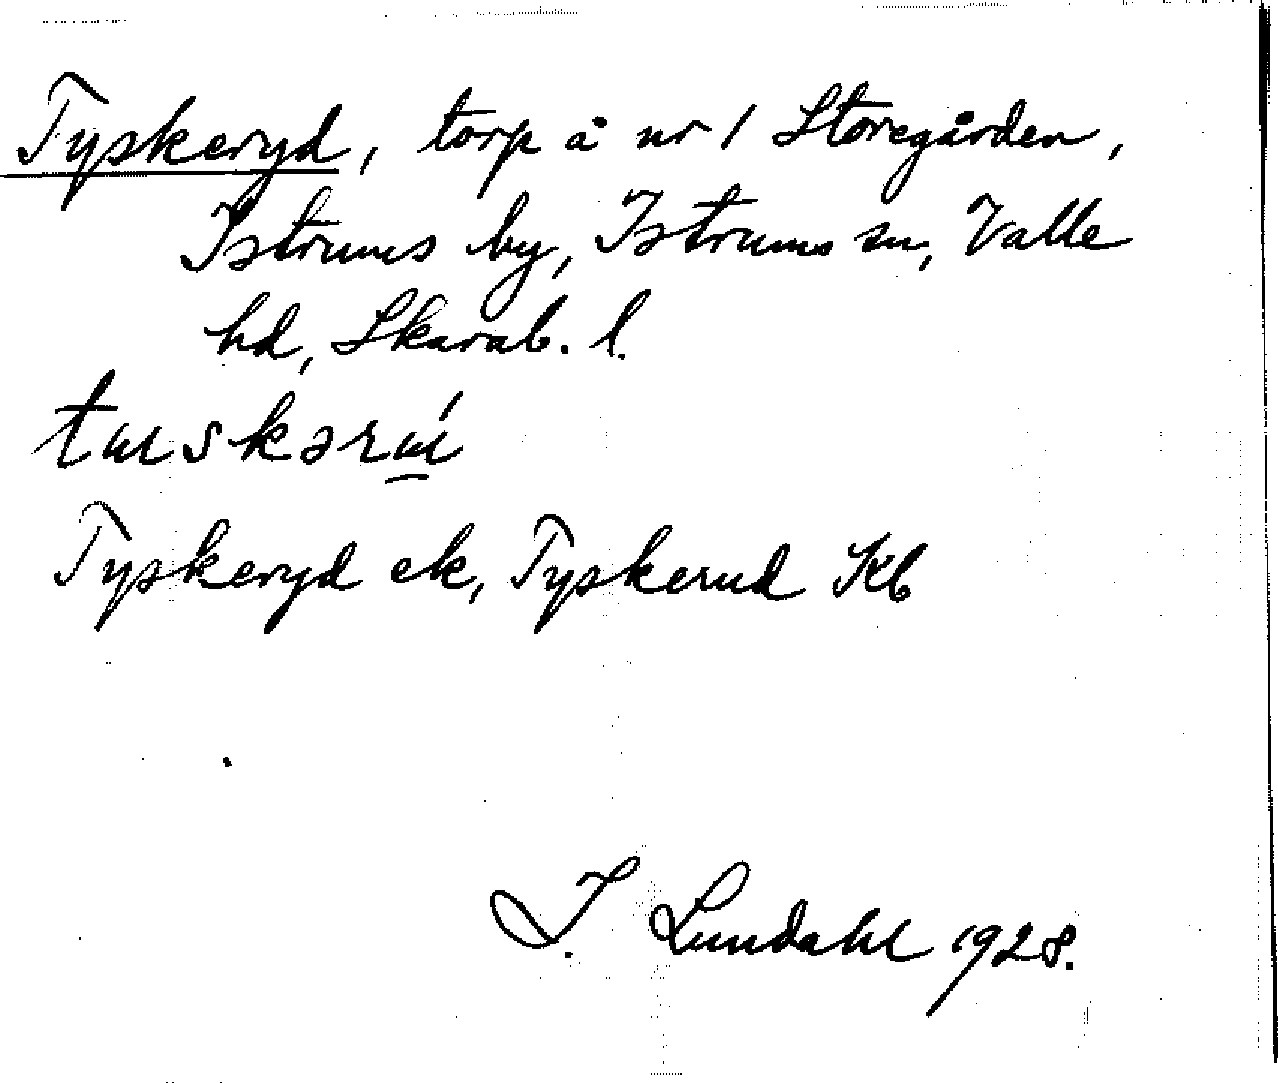 Tyskeryd, torp å nr 1 Storegården,
Istrums by, Istrums sn, Valle
hd, Skarab. l.
Tyskeryd ek, Tyskerud Kb
I. Lundahl 1928.